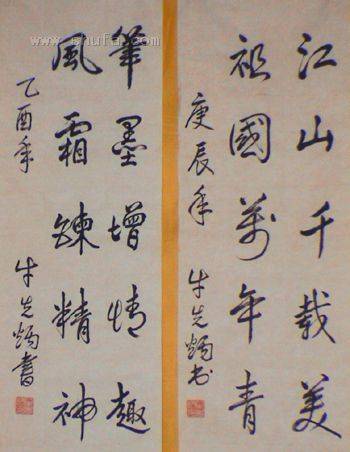 江山千載美
祖國萬年青
庚辰年 牛先书
筆墨增情趣
風霜鍊精神
乙酉年 牛先書